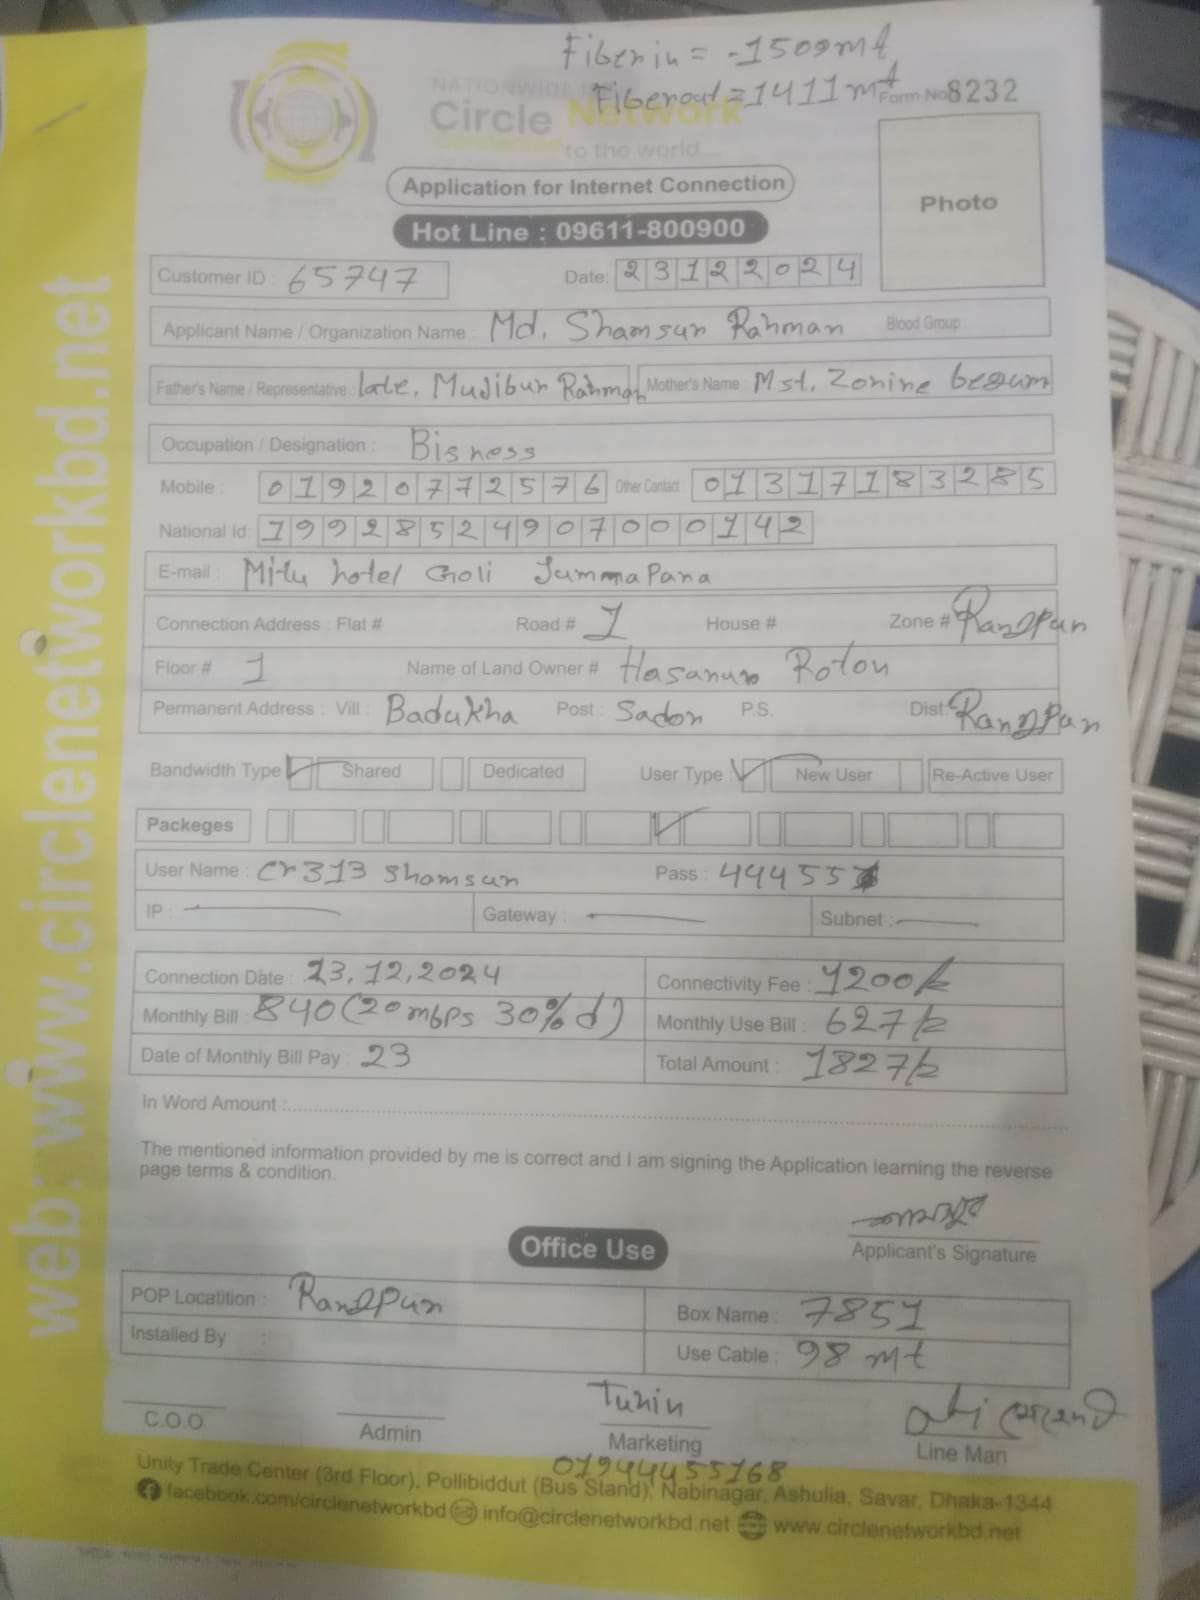 Fiber in = -1509mt
Fiberout = 1411mt
NATIONWIDE
Form No 8232
Circle Network
Connected
to the world...
Application for Internet Connection
Photo
Hot Line : 09611-800900
Customer ID : 65747 Date: 23122024
Applicant Name / Organization Name : Md. Shamsur Rahman Blood Group
Father's Name / Representative : late, Mujibur Rahman Mother's Name : Mst. Zorine begum
Occupation / Designation : Bisness
Mobile : 01920772576 Other Contact 01317183285
National Id: 19928524907000142
E-mail : Mitu hotel Goli Jumma Para
Connection Address : Flat # Road # 1 House # Zone # Rangpur
Floor # 1 Name of Land Owner # Hasanur Roton
Permanent Address : Vill : Badukha Post : Sador P.S. Dist: Rangpur
Bandwidth Type Shared Dedicated User Type : New User Re-Active User
Packeges
User Name : cr313 shamsur Pass : 444555
IP : Gateway : Subnet :
Connection Date : 23.12.2024 Connectivity Fee : 1200/=
Monthly Bill : 840 (20 mbps 30% d) Monthly Use Bill : 627/=
Date of Monthly Bill Pay : 23 Total Amount : 1827/=
In Word Amount :
The mentioned information provided by me is correct and I am signing the Application learning the reverse
page terms & condition.
Applicant's Signature
Office Use
POP Locatition : Rangpur Box Name : 7851
Installed By : Use Cable : 98 mt
Tuhin
C.O.O Admin Marketing Line Man
01944455168
Unity Trade Center (3rd Floor), Pollibiddut (Bus Stand), Nabinagar, Ashulia, Savar, Dhaka-1344
facebook.com/circlenetworkbd info@circlenetworkbd.net www.circlenetworkbd.net
web: www.circlenetworkbd.net